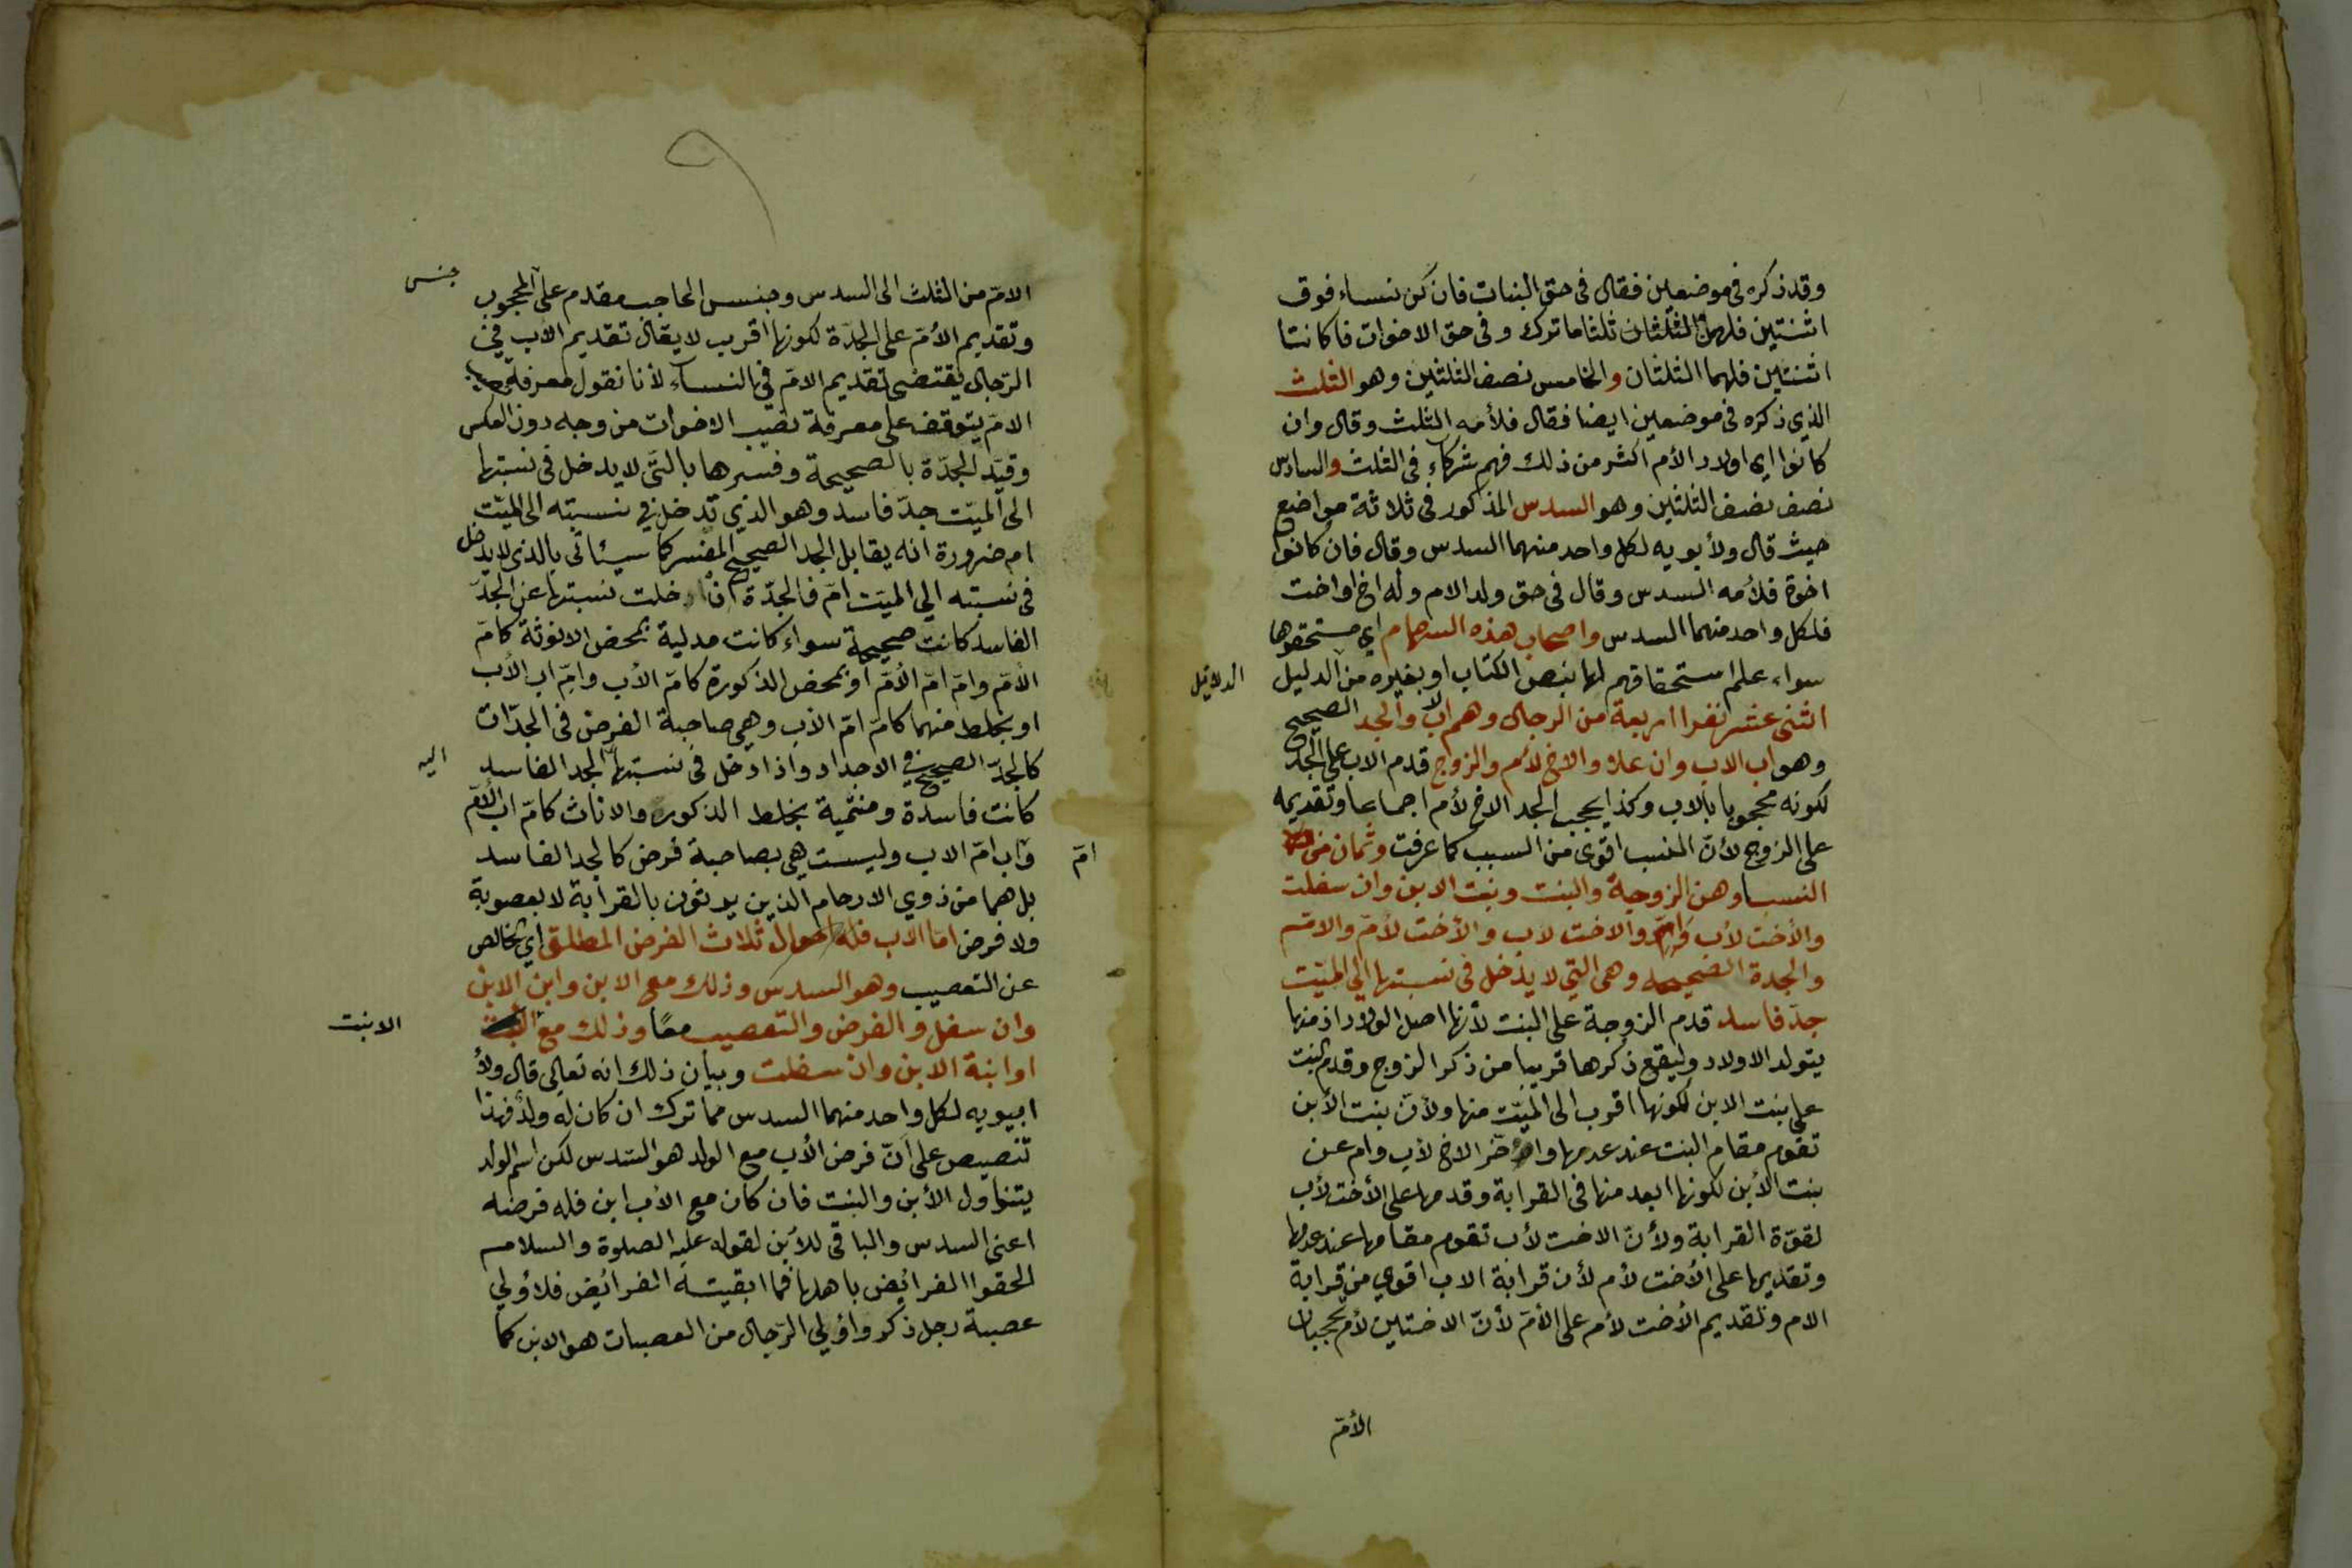 وقد ذكره في موضعين فقال في حق البنات فان كن نساء فوق
اثنتين فلهن الثلثان ثلثا ما ترك وفي حق الاخوات فا كانتا
اثنتين فلهما الثلثان والخامس نصف الثلثين وهو الثلث
الذي ذكره في موضعين ايضا فقال فلأمه الثلث وقال وان
كانوا اي اولاد الأم اكثر من ذلك فهم شركاء في الثلث والسادس
نصف نصف الثلثين وهو السدس المذكور في ثلاثة مواضع
حيث قال ولأبويه لكل واحد منهما السدس وقال فان كانوا
اخوة فلأمه السدس وقال في حق ولد الام وله اخ او اخت
فلكل واحد منهما السدس واصحاب هذه السهام اي مستحقوها
سواء علم استحقاقهم لها بنص الكتاب او بغيره من الدليل
الدلائل
اثنى عشر نفرا اربعة من الرجال وهم الاب والجد الصحيح
وهو اب الاب وان علا والاخ لأم والزوج قدم الاب على الجد
لكونه محجوبا بالاب وكذا يحجب الجد الاخ لأم اجماعا وتقديمه
على الزوج لأن النسب اقوى من السبب كما عرفت وثمان من
النسا وهن الزوجة والبنت وبنت الابن وان سفلت
والأخت لأب وام والاخت لاب والأخت لأم والام
والجدة الصحيحه وهى التي لا يدخل في نسبتها الي الميت
جد فاسد قدم الزوجة على البنت لأنها اصل الولاد اذ منها
يتولد الاولاد وليقع ذكرها قريبا من ذكر الزوج وقدم البنت
على بنت الابن لكونها اقرب الى الميت منها ولأن بنت الأبن
تقوم مقام البنت عند عدمها واخر الاخ لأب وام عن
بنت الأبن لكونها ابعد منها في القرابة وقدمها على الأخت لأب
لقوة القرابة ولأن الاخت لأب تقوم مقامها عند عدمها
وتقديمها على الأخت لأم لأن قرابة الاب اقوي من قرابة
الام وتقديم الأخت لأم على الأم لأن الاختين لأم يحجبان
الأم
الام من الثلث الى السدس وجنس الحاجب مقدم على المحجوب
جنس
وتقديم الأم على الجدة لكونها اقرب لا يقال تقديم الأب في
الرجال يقتضى تقديم الام في النساء لأنا نقول معرفة
الام يتوقف على معرفة نصيب الاخوات من وجه دون العكس
وقيد الجدة بالصحيحة وفسرها بالتى لا يدخل في نسبتها
الى الميت جد فاسد وهو الذي تدخل في نسبته الى الميت
ام ضرورة انه يقابل الجد الصحيح المفسر كما سيئاتي بالذي لا يدخل
في نسبته الي الميت ام فالجدة خلت نسبتها عن الجد
الفاسد كانت صحيحة سواء كانت مدلية بمحض الانوثة كام
الأم وام ام الأم او بمحض الذكورة كام الأب وام اب الأب
او بخلط منهما كام ام الأب وهي صاحبة الفرض في الجدات
كالجد الصحيح في الاجداد واذا دخل في نسبتها الجد الفاسد
اليه
كانت فاسدة ومنتمية بخلط الذكور والاناث كام اب الأم
واب ام الاب وليست هي بصاحبة فرض كالجد الفاسد
ام
بل هما من ذوي الارحام الذين يرثون بالقرابة لا بعصوبة
ولا فرض اما الأب فله احوال ثلاث الفرض المطلق اي الخالص
عن التعصيب وهو السدس وذلك مع الابن وابن الابن
وان سفل والفرض والتعصيب معًا وذلك مع البنت
الابنت
او ابنة الابن وان سفلت وبيان ذلك انه تعالى قال ولأ
ابيويه لكل واحد منهما السدس مما ترك ان كان له ولد فهذا
تنصيص على ان فرض الأب مع الولد هو السدس لكن اسم الولد
يتناول الأبن والبنت فان كان مع الأب ابن فله فرضه
اعني السدس والباقي للأبن لقوله عليه الصلوة والسلام
الحقوا الفرائض باهلها فما ابقيته الفرائض فلأولي
عصبة رجل ذكر واولي الرجال من العصبات هو الابن كما